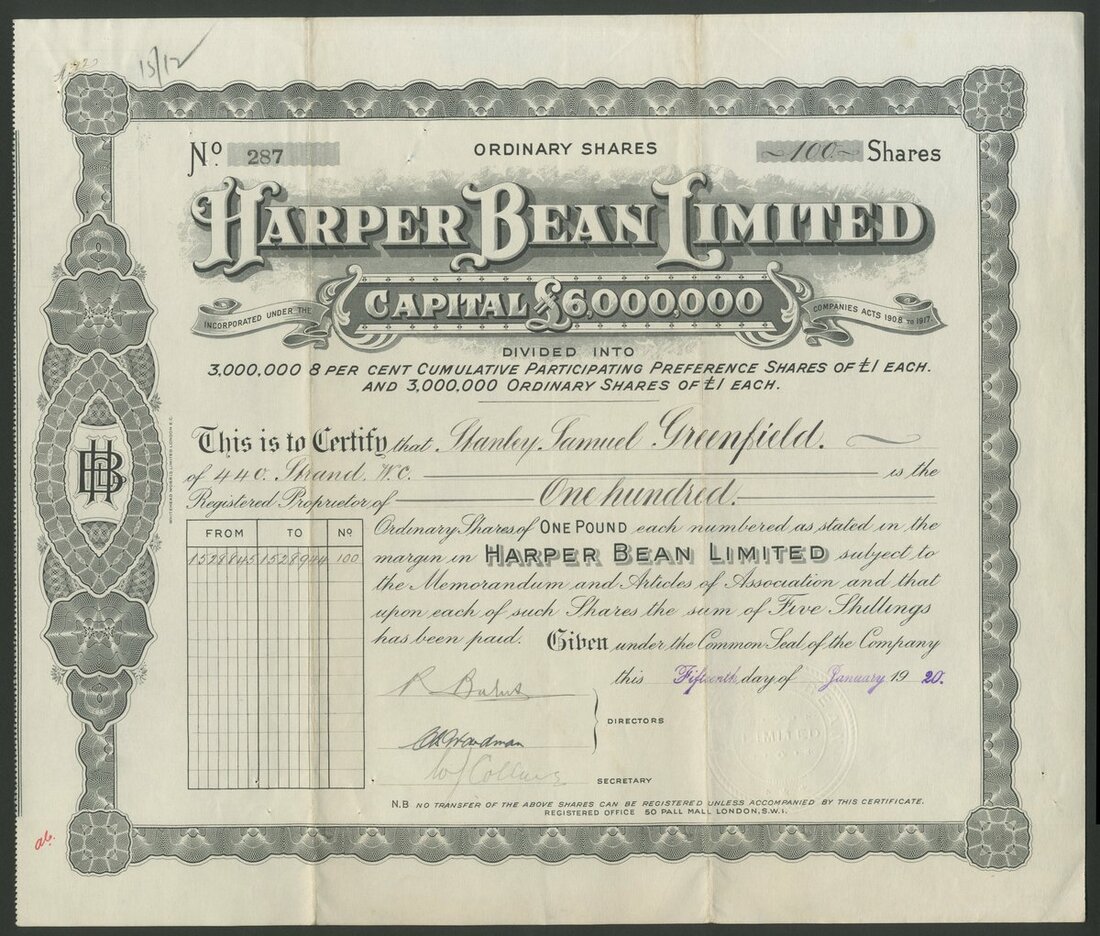 15/12
No 287
ORDINARY SHARES
~100~ Shares
HARPER BEAN LIMITED
CAPITAL £6,000,000
INCORPORATED UNDER THE
COMPANIES ACTS 1908 TO 1917
DIVIDED INTO
3,000,000 8 PER CENT CUMULATIVE PARTICIPATING PREFERENCE SHARES OF £1 EACH.
AND 3,000,000 ORDINARY SHARES OF £1 EACH.
This is to Certify that Stanley Samuel Greenfield.
of 440. Strand. W.C. is the
Registered Proprietor of One hundred.
Ordinary Shares of ONE POUND each numbered as stated in the
margin in HARPER BEAN LIMITED subject to
the Memorandum and Articles of Association and that
upon each of such Shares the sum of Five Shillings
has been paid. Given under the Common Seal of the Company
this Fifteenth day of January 1920.
FROM TO No
1528845 1528944 100
HB
WHITEHEAD MORRIS LIMITED LONDON E.C.
DIRECTORS
W J Collins
SECRETARY
LIMITED
N.B NO TRANSFER OF THE ABOVE SHARES CAN BE REGISTERED UNLESS ACCOMPANIED BY THIS CERTIFICATE.
REGISTERED OFFICE 50 PALL MALL LONDON, S.W.1.
ab.